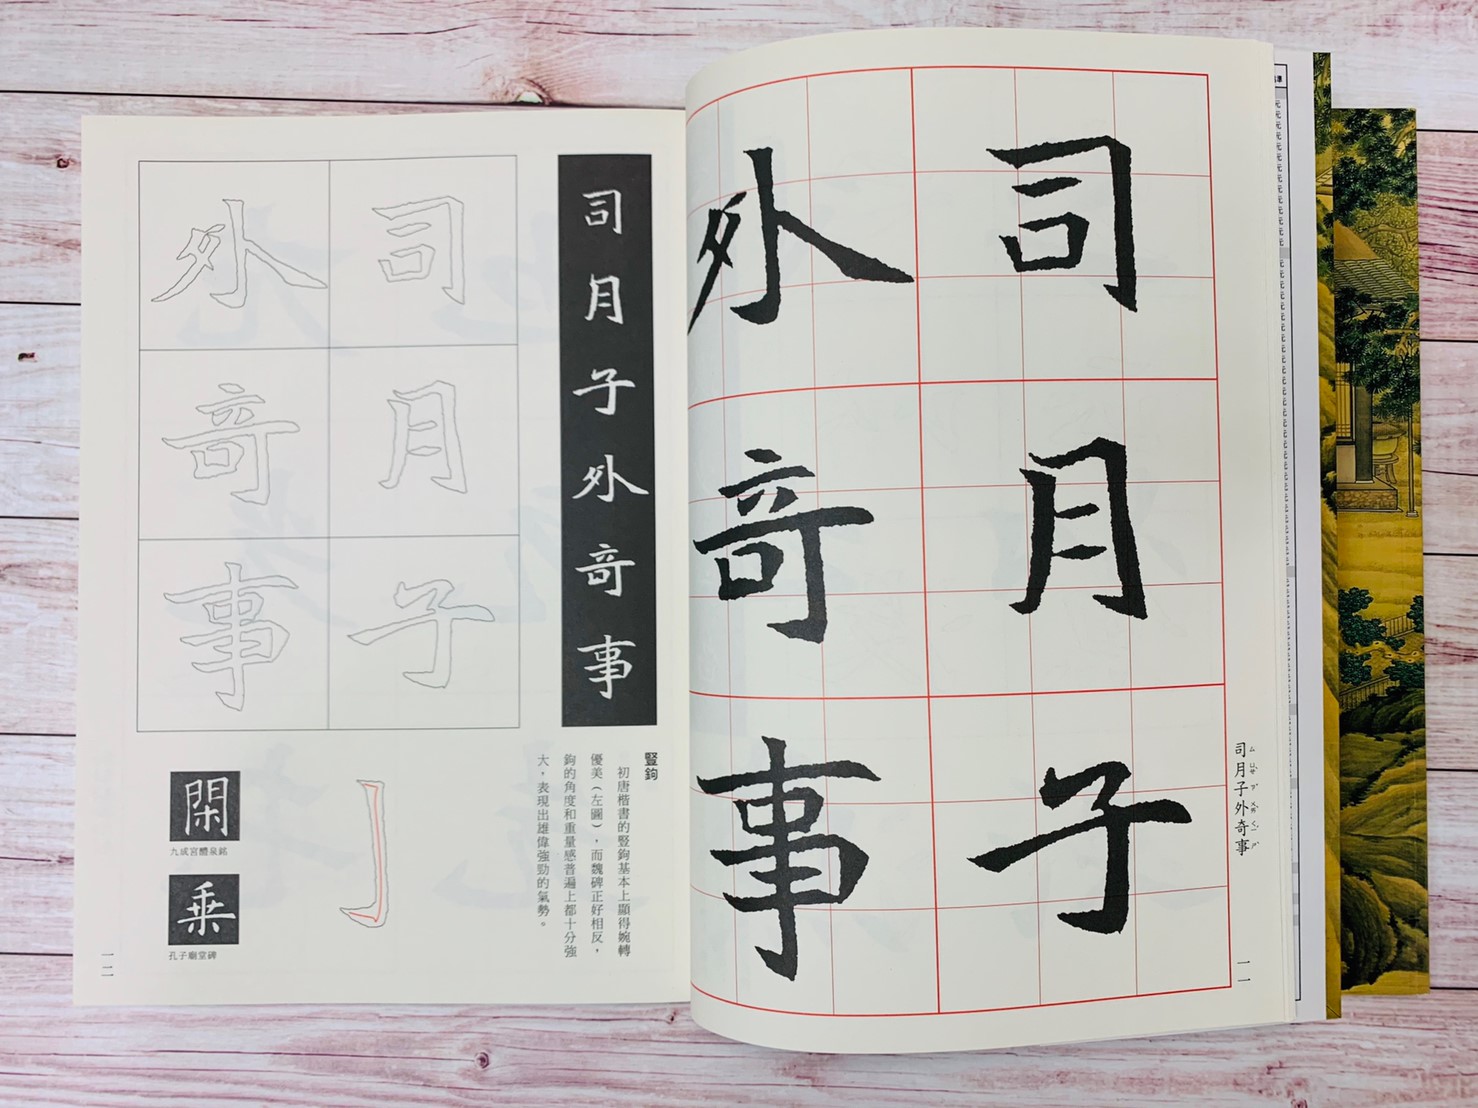 司月子
外奇事
司月子外奇事
一一
司月子外奇事
司月子
外奇事
豎鉤
初唐楷書的豎鉤基本上顯得婉轉
優美（左圖），而魏碑正好相反，
鉤的角度和重量感普遍上都十分強
大，表現出雄偉強勁的氣勢。
閑
九成宮醴泉銘
乗
孔子廟堂碑
一二